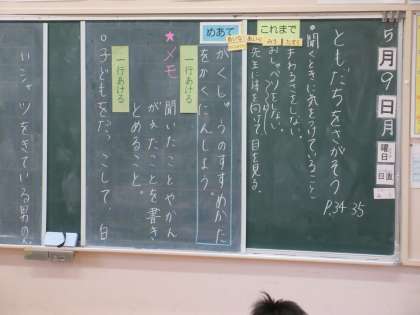 5月9日月
曜日
日直
ともだちをさがそう
P.34 35
これまで
•聞くときに気をつけていること
さわらさをしない。
おしゃべりをしない
先生に体を向けて目を見る。
めあて
がくしゅうのすすめかた
をかくにんしよう。
一行あける
★メモ
聞いたことやかんがえたことを書き
とめること。
一行あける
○子どもをだっこして、白
いシャツをきている男の